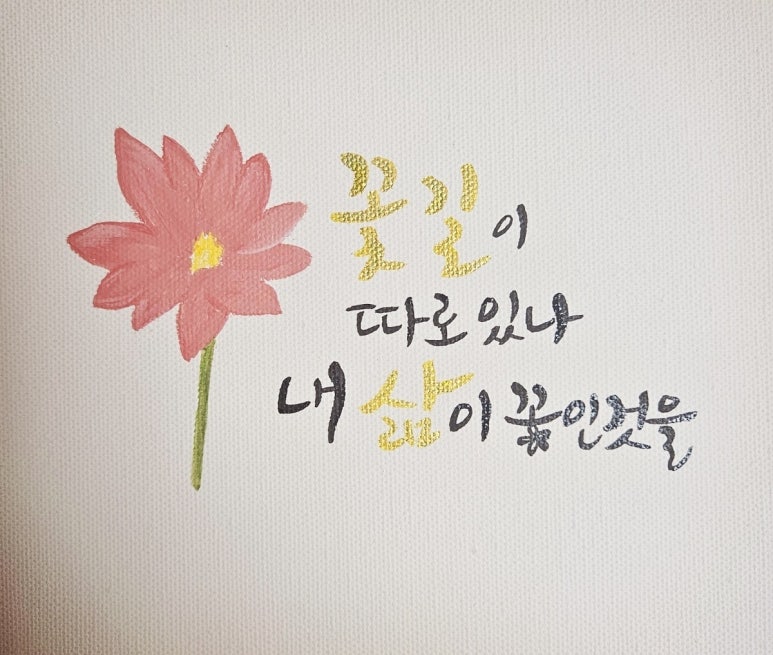 꽃길이
따로 있나
내 삶이 꽃인것을